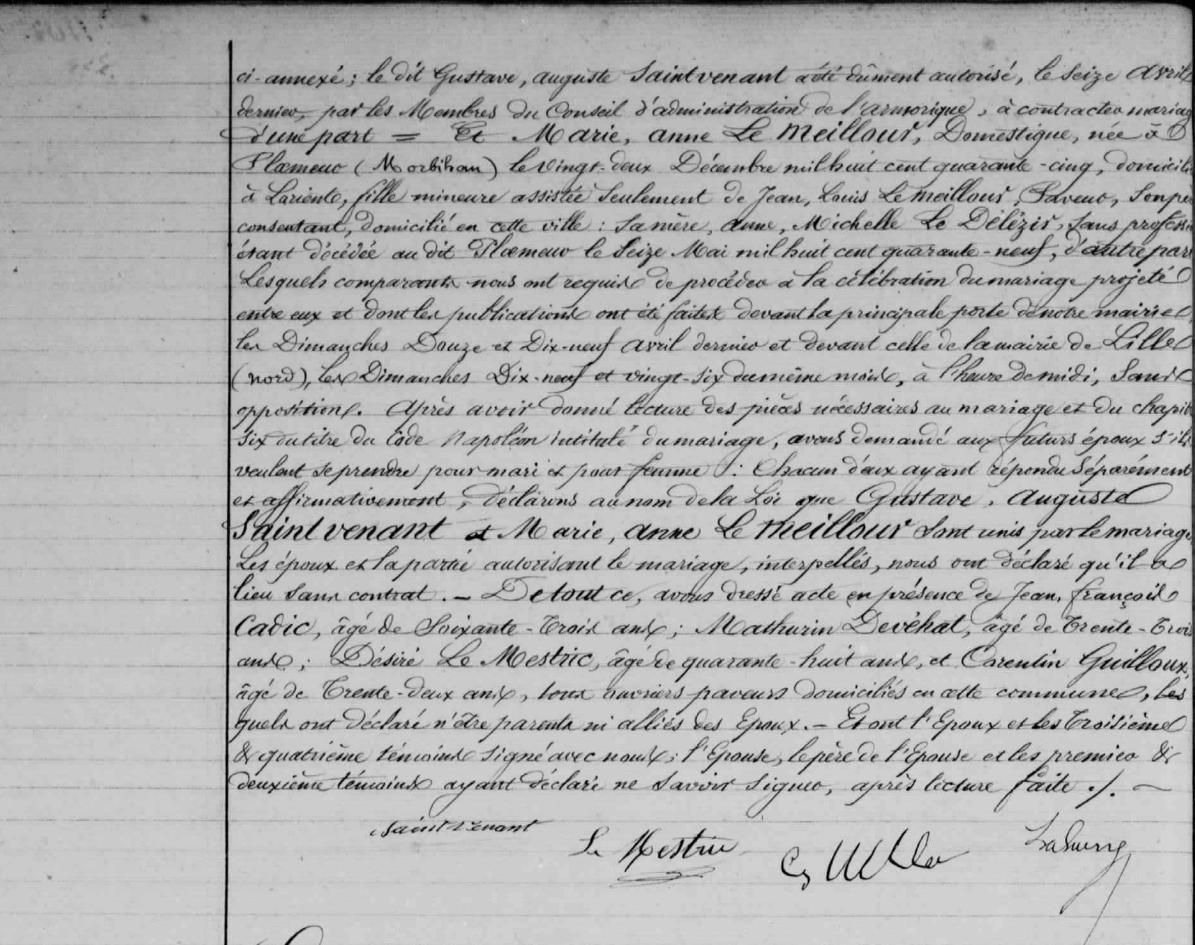 ci-annexé ; le dit Gustave, auguste Saintvenant a été dûment autorisé, le seize avril
dernier, par les Membres du Conseil d'administration de l'armorique, à contracter mariag
d'une part = Et Marie, anne Le Meillour, Domestique, née à
Ploemeur (Morbihan) le vingt-deux Décembre mil huit cent quarante-cinq, domicili
à Lorient, fille mineure assistée seulement de Jean, Louis Le Meillour, Paveur, son pè
consentant, domicilié en cette ville : sa mère, anne, Michelle Le Délézir, sans profess
étant décédée au dit Ploemeur le seize Mai mil huit cent quarante-neuf, d'autre part
Lesquels comparants nous ont requis de procéder à la célébration du mariage projeté
entre eux et dont les publications ont été faites devant la principale porte de notre mairie
les Dimanches Douze et Dix-neuf avril dernier et devant celle de la mairie de Lille
(nord), les Dimanches Dix-neuf et vingt-six du même mois, à l'heure de midi, sans
opposition. Après avoir donné lecture des pièces nécessaires au mariage et du chapit
six du titre du Code Napoléon intitulé du mariage, avons demandé aux futurs époux s'ils
veulent se prendre pour mari et pour femme : Chacun d'eux ayant répondu séparément
et affirmativement, déclarons au nom de la Loi que Gustave, auguste
Saintvenant et Marie, anne Le Meillour sont unis par le mariage
Les époux et la partie autorisant le mariage, interpellés, nous ont déclaré qu'il a
lieu sans contrat. — De tout ce, avons dressé acte en présence de Jean, françois
Cadic, âgé de Soixante-Trois ans ; Mathurin Devéhat, âgé de Trente-Trois
ans ; Désiré Le Mestric, âgé de quarante-huit ans, et Corentin Guilloux,
âgé de Trente-deux ans, tous ouvriers paveurs domiciliés en cette commune, les
quels ont déclaré n'être parents ni alliés des Epoux. — Et ont l'Epoux et les Troisième
& quatrième témoins signé avec nous ; l'Epouse, le père de l'Epouse et les premier &
deuxième témoins ayant déclaré ne savoir signer, après lecture faite ./. —
Saintvenant
Le Mestric